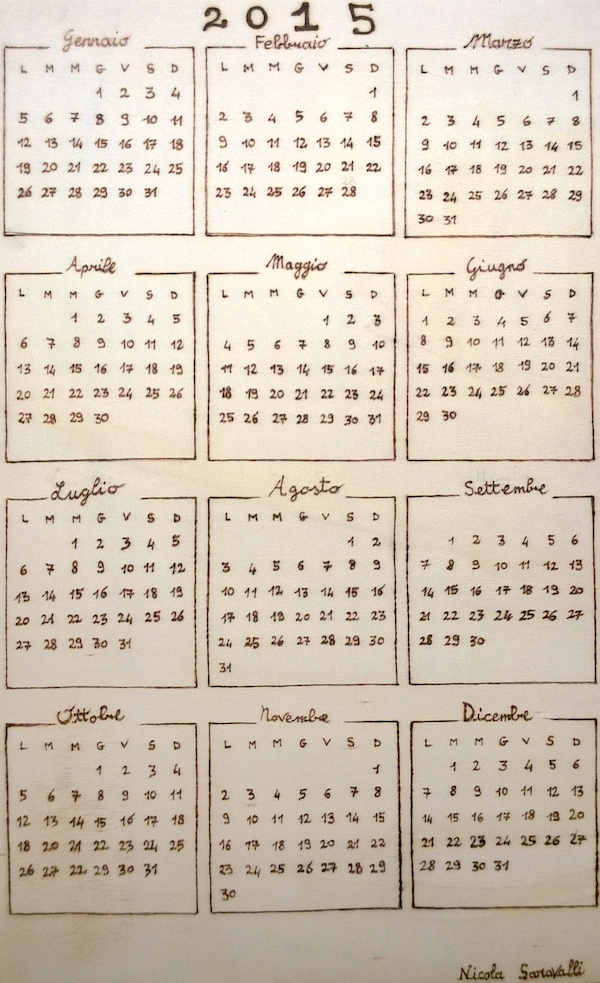 2015
Gennaio
L M M G V S D
1 2 3 4
5 6 7 8 9 10 11
12 13 14 15 16 17 18
19 20 21 22 23 24 25
26 27 28 29 30 31
Febbraio
L M M G V S D
1
2 3 4 5 6 7 8
9 10 11 12 13 14 15
16 17 18 19 20 21 22
23 24 25 26 27 28
Marzo
L M M G V S D
1
2 3 4 5 6 7 8
9 10 11 12 13 14 15
16 17 18 19 20 21 22
23 24 25 26 27 28 29
30 31
Aprile
L M M G V S D
1 2 3 4 5
6 7 8 9 10 11 12
13 14 15 16 17 18 19
20 21 22 23 24 25 26
27 28 29 30
Maggio
L M M G V S D
1 2 3
4 5 6 7 8 9 10
11 12 13 14 15 16 17
18 19 20 21 22 23 24
25 26 27 28 29 30 31
Giugno
L M M G V S D
1 2 3 4 5 6 7
8 9 10 11 12 13 14
15 16 17 18 19 20 21
22 23 24 25 26 27 28
29 30
Luglio
L M M G V S D
1 2 3 4 5
6 7 8 9 10 11 12
13 14 15 16 17 18 19
20 21 22 23 24 25 26
27 28 29 30 31
Agosto
L M M G V S D
1 2
3 4 5 6 7 8 9
10 11 12 13 14 15 16
17 18 19 20 21 22 23
24 25 26 27 28 29 30
31
Settembre
1 2 3 4 5 6
7 8 9 10 11 12 13
14 15 16 17 18 19 20
21 22 23 24 25 26 27
28 29 30
Ottobre
L M M G V S D
1 2 3 4
5 6 7 8 9 10 11
12 13 14 15 16 17 18
18 20 21 22 23 24 25
26 27 22 29 30 31
Novembre
L M M G V S D
1
2 3 4 5 6 7 8
9 10 11 12 13 14 15
16 17 18 19 20 21 22
23 24 25 26 27 28 29
30
Dicembre
L M M G V S D
1 2 3 4 5 6
7 8 9 10 11 12 13
14 15 16 17 18 19 20
21 22 23 24 25 26 27
28 29 30 31
Nicola Saravalli